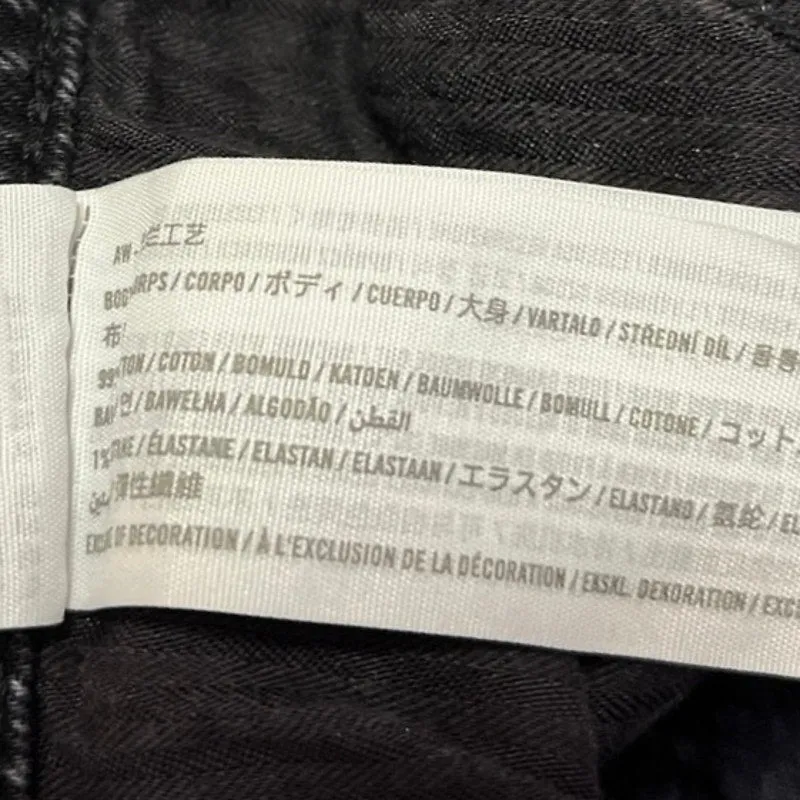 工艺
/CORPO/ボディ/CUERPO/大身/VARTALO/STŘEDNÍ DÍL/
布
/COTON/BOMULD/KATOEN/BAUMWOLLE/BOMULL/COTONE/コット
/BAWEŁNA/ALGODÃO/القطن
/ÉLASTANE/ELASTAN/ELASTAAN/エラスタン/ELASTANO/氨纶/EL
弹性纖維
OF DECORATION/À L'EXCLUSION DE LA DÉCORATION/EKSKL. DEKORATION/EXC